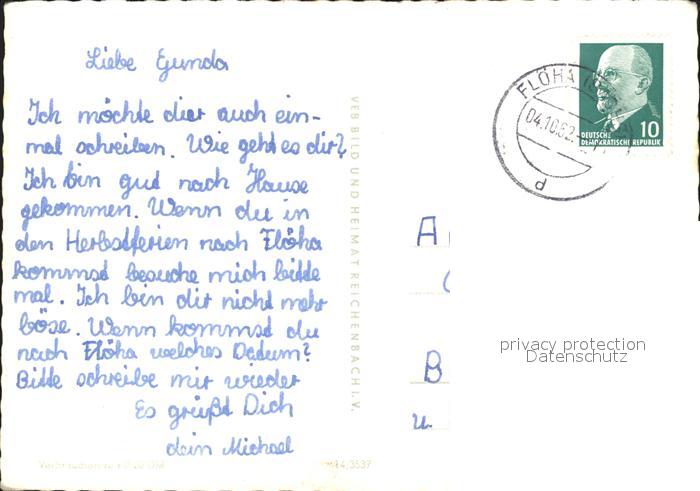 Liebe Gunda
Ich möchte dier auch ein-
mal schreiben. Wie geht es dir?
Ich bin gut nach Hause
gekommen. Wenn du in
den Herbstferien nach Flöha
kommst besuche mich bitte
mal. Ich bin dir nicht mehr
böse. Wann kommst du
nach Flöha welches Datum?
Bitte schreibe mir wieder
Es grüßt Dich
dein Michael
VEB BILD UND HEIMAT REICHENBACH I. V.
FLÖHA
04.10.62
d
10
DEUTSCHE
DEMOKRATISCHE REPUBLIK
A
B
u.
privacy protection
Datenschutz